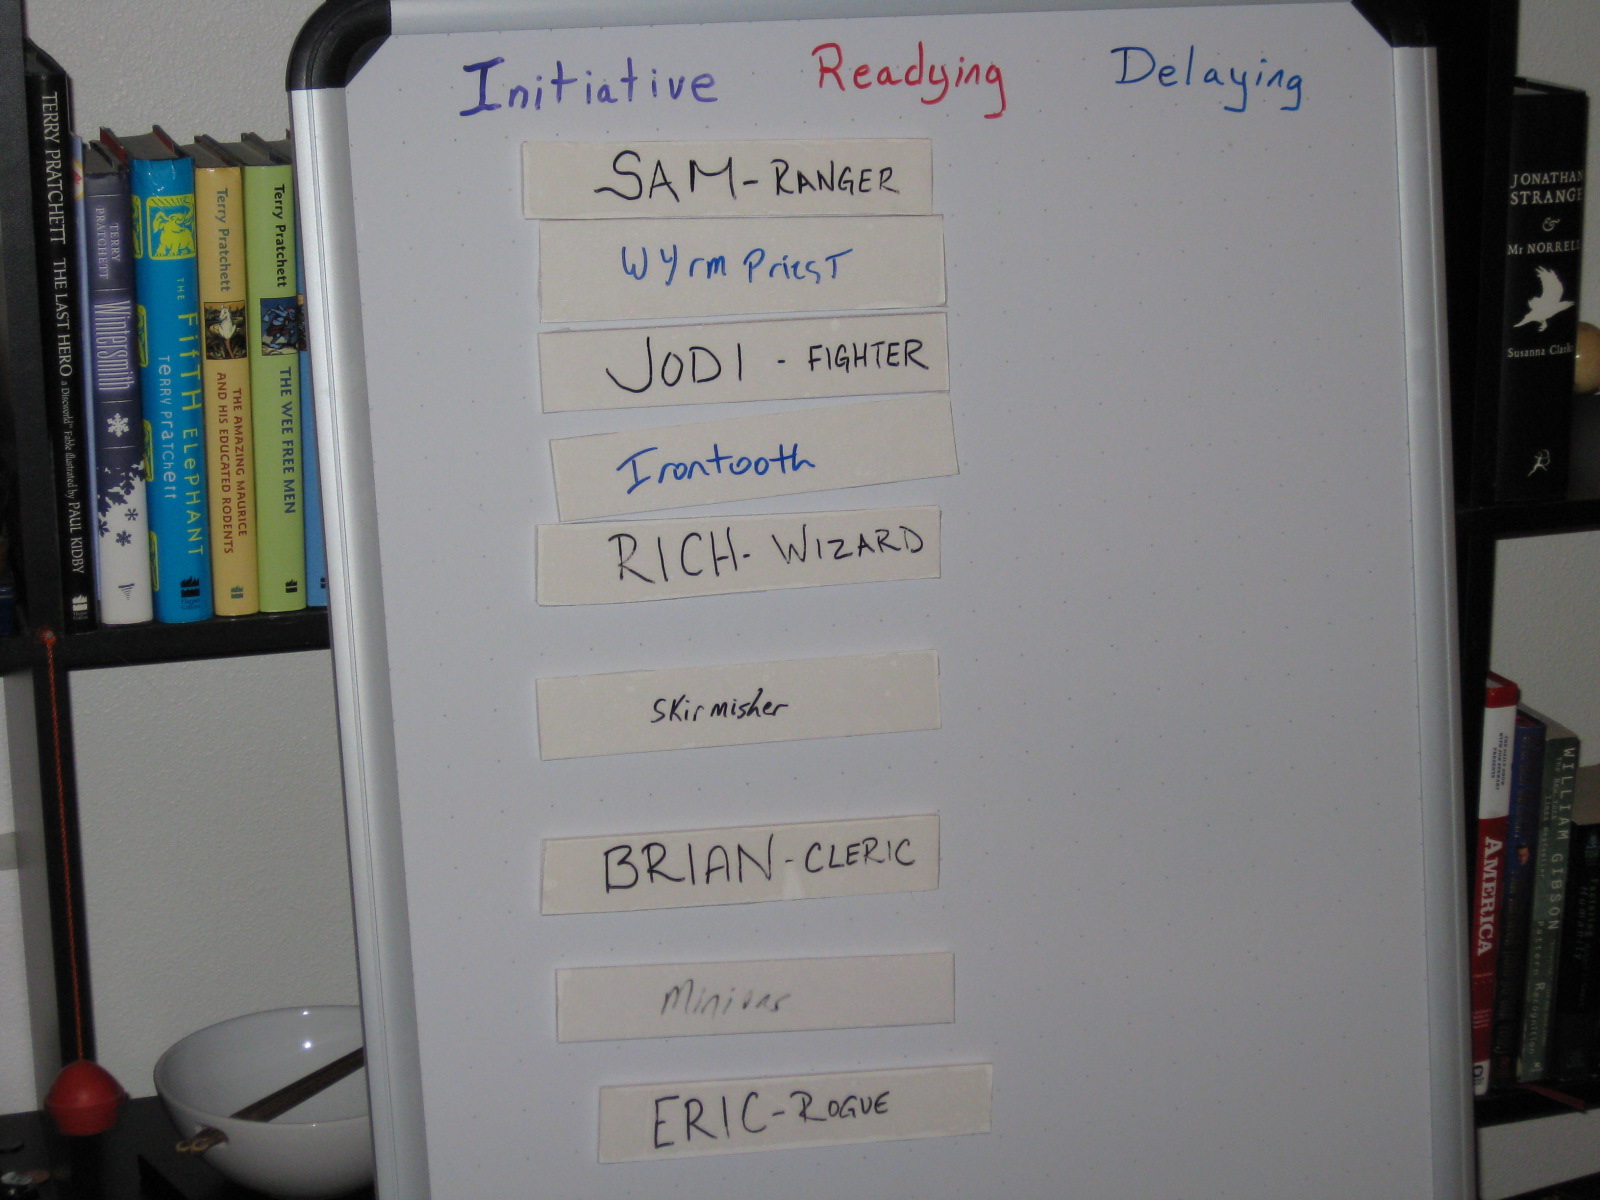 Initiative Readying Delaying
SAM-RANGER
Wyrm Priest
JODI - FIGHTER
Irontooth
RICH-WIZARD
Skirmisher
BRIAN-CLERIC
Minions
ERIC-ROGUE
TERRY PRATCHETT THE LAST HERO a Discworld Fable illustrated by PAUL KIDBY
TERRY PRATCHETT Wintersmith
THE FIFTH ELEPHANT TERRY PRATCHETT
Terry Pratchett THE AMAZING MAURICE
AND HIS EDUCATED RODENTS
Terry Pratchett THE WEE FREE MEN
JONATHAN
STRANGE
&
Mr NORRELL
Susanna Clarke
AMERICA
WILLIAM GIBSON Pattern Recognition